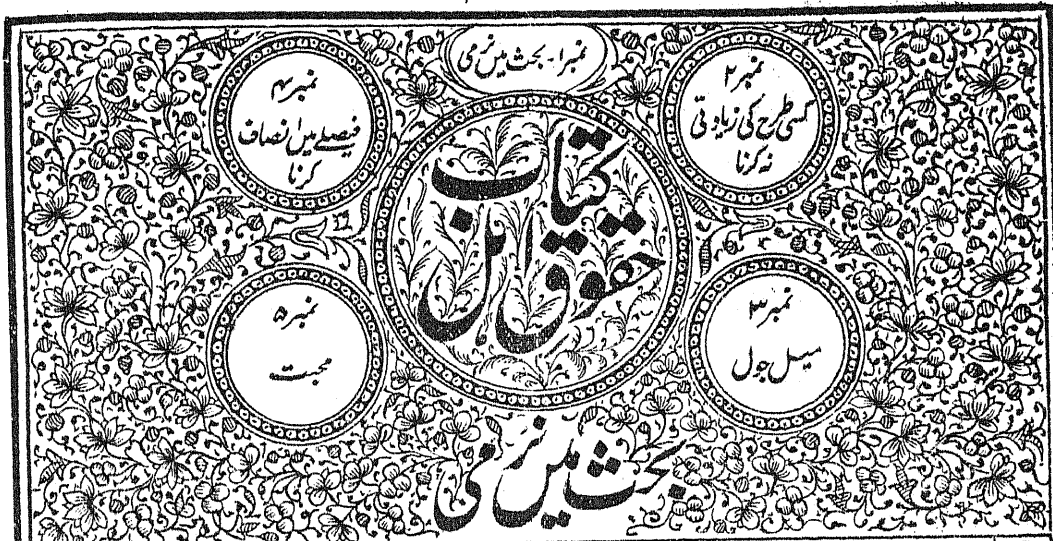 نمبر۱۔ بحث میں نرمی
نمبر۲
کسی طرح کی زیادتی
نہ کرنا
نمبر۴
فیصلے میں انصاف
کرنا
حقوق اہل کتاب
نمبر۳
میل جول
نمبر۵
محبت
بحث میں نرمی